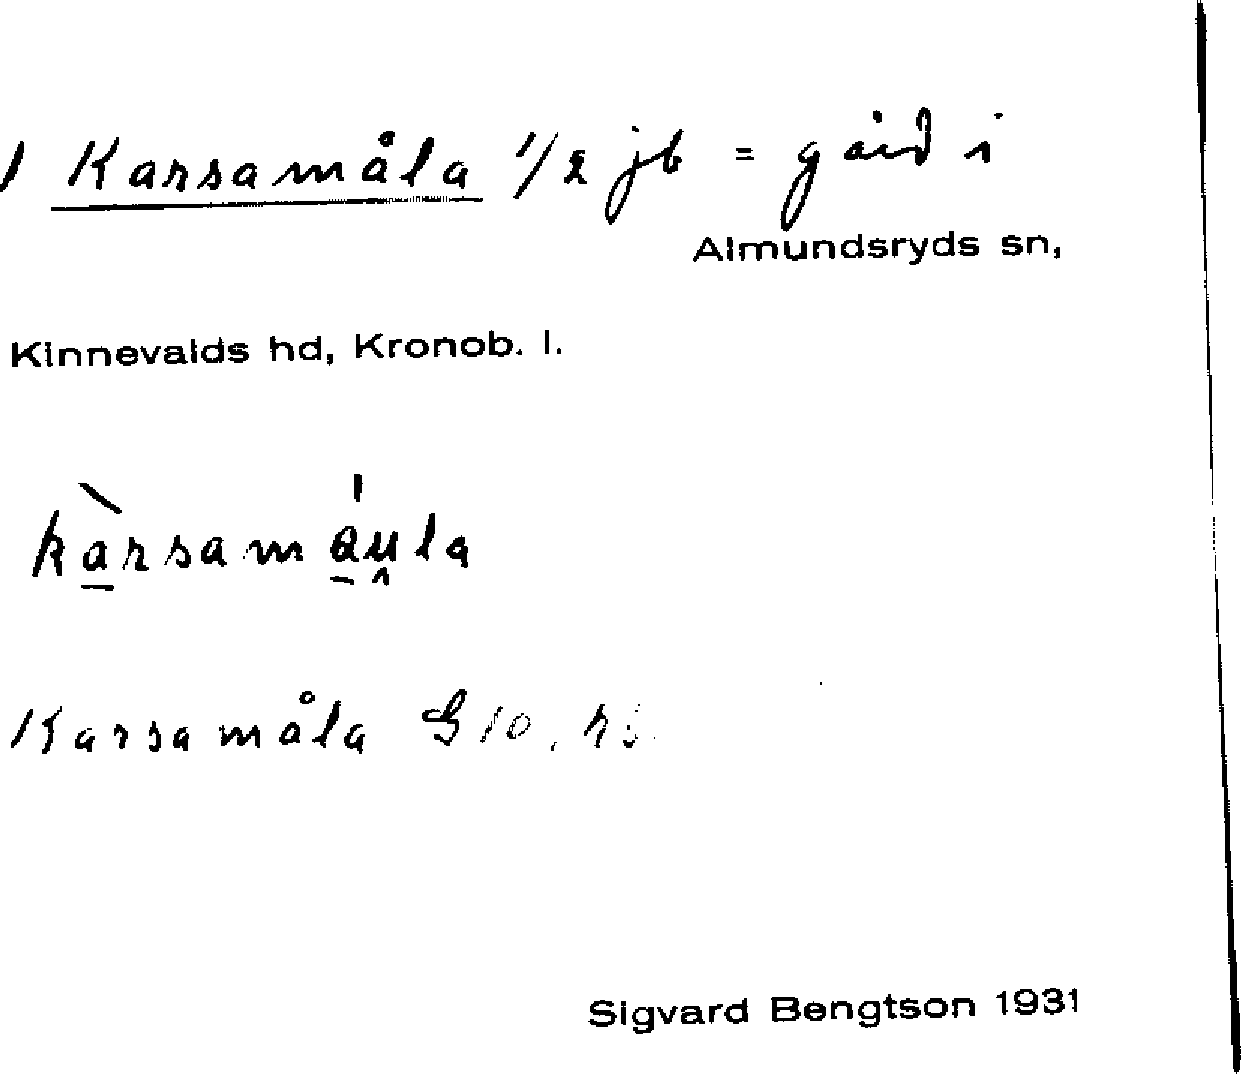 Karsamåla 1/2 jb = gård i
Almundsryds sn,
Kinnevalds hd, Kronob. l.
kàrsamáu̯la
Karsamåla G 10.
Sigvard Bengtson 1931